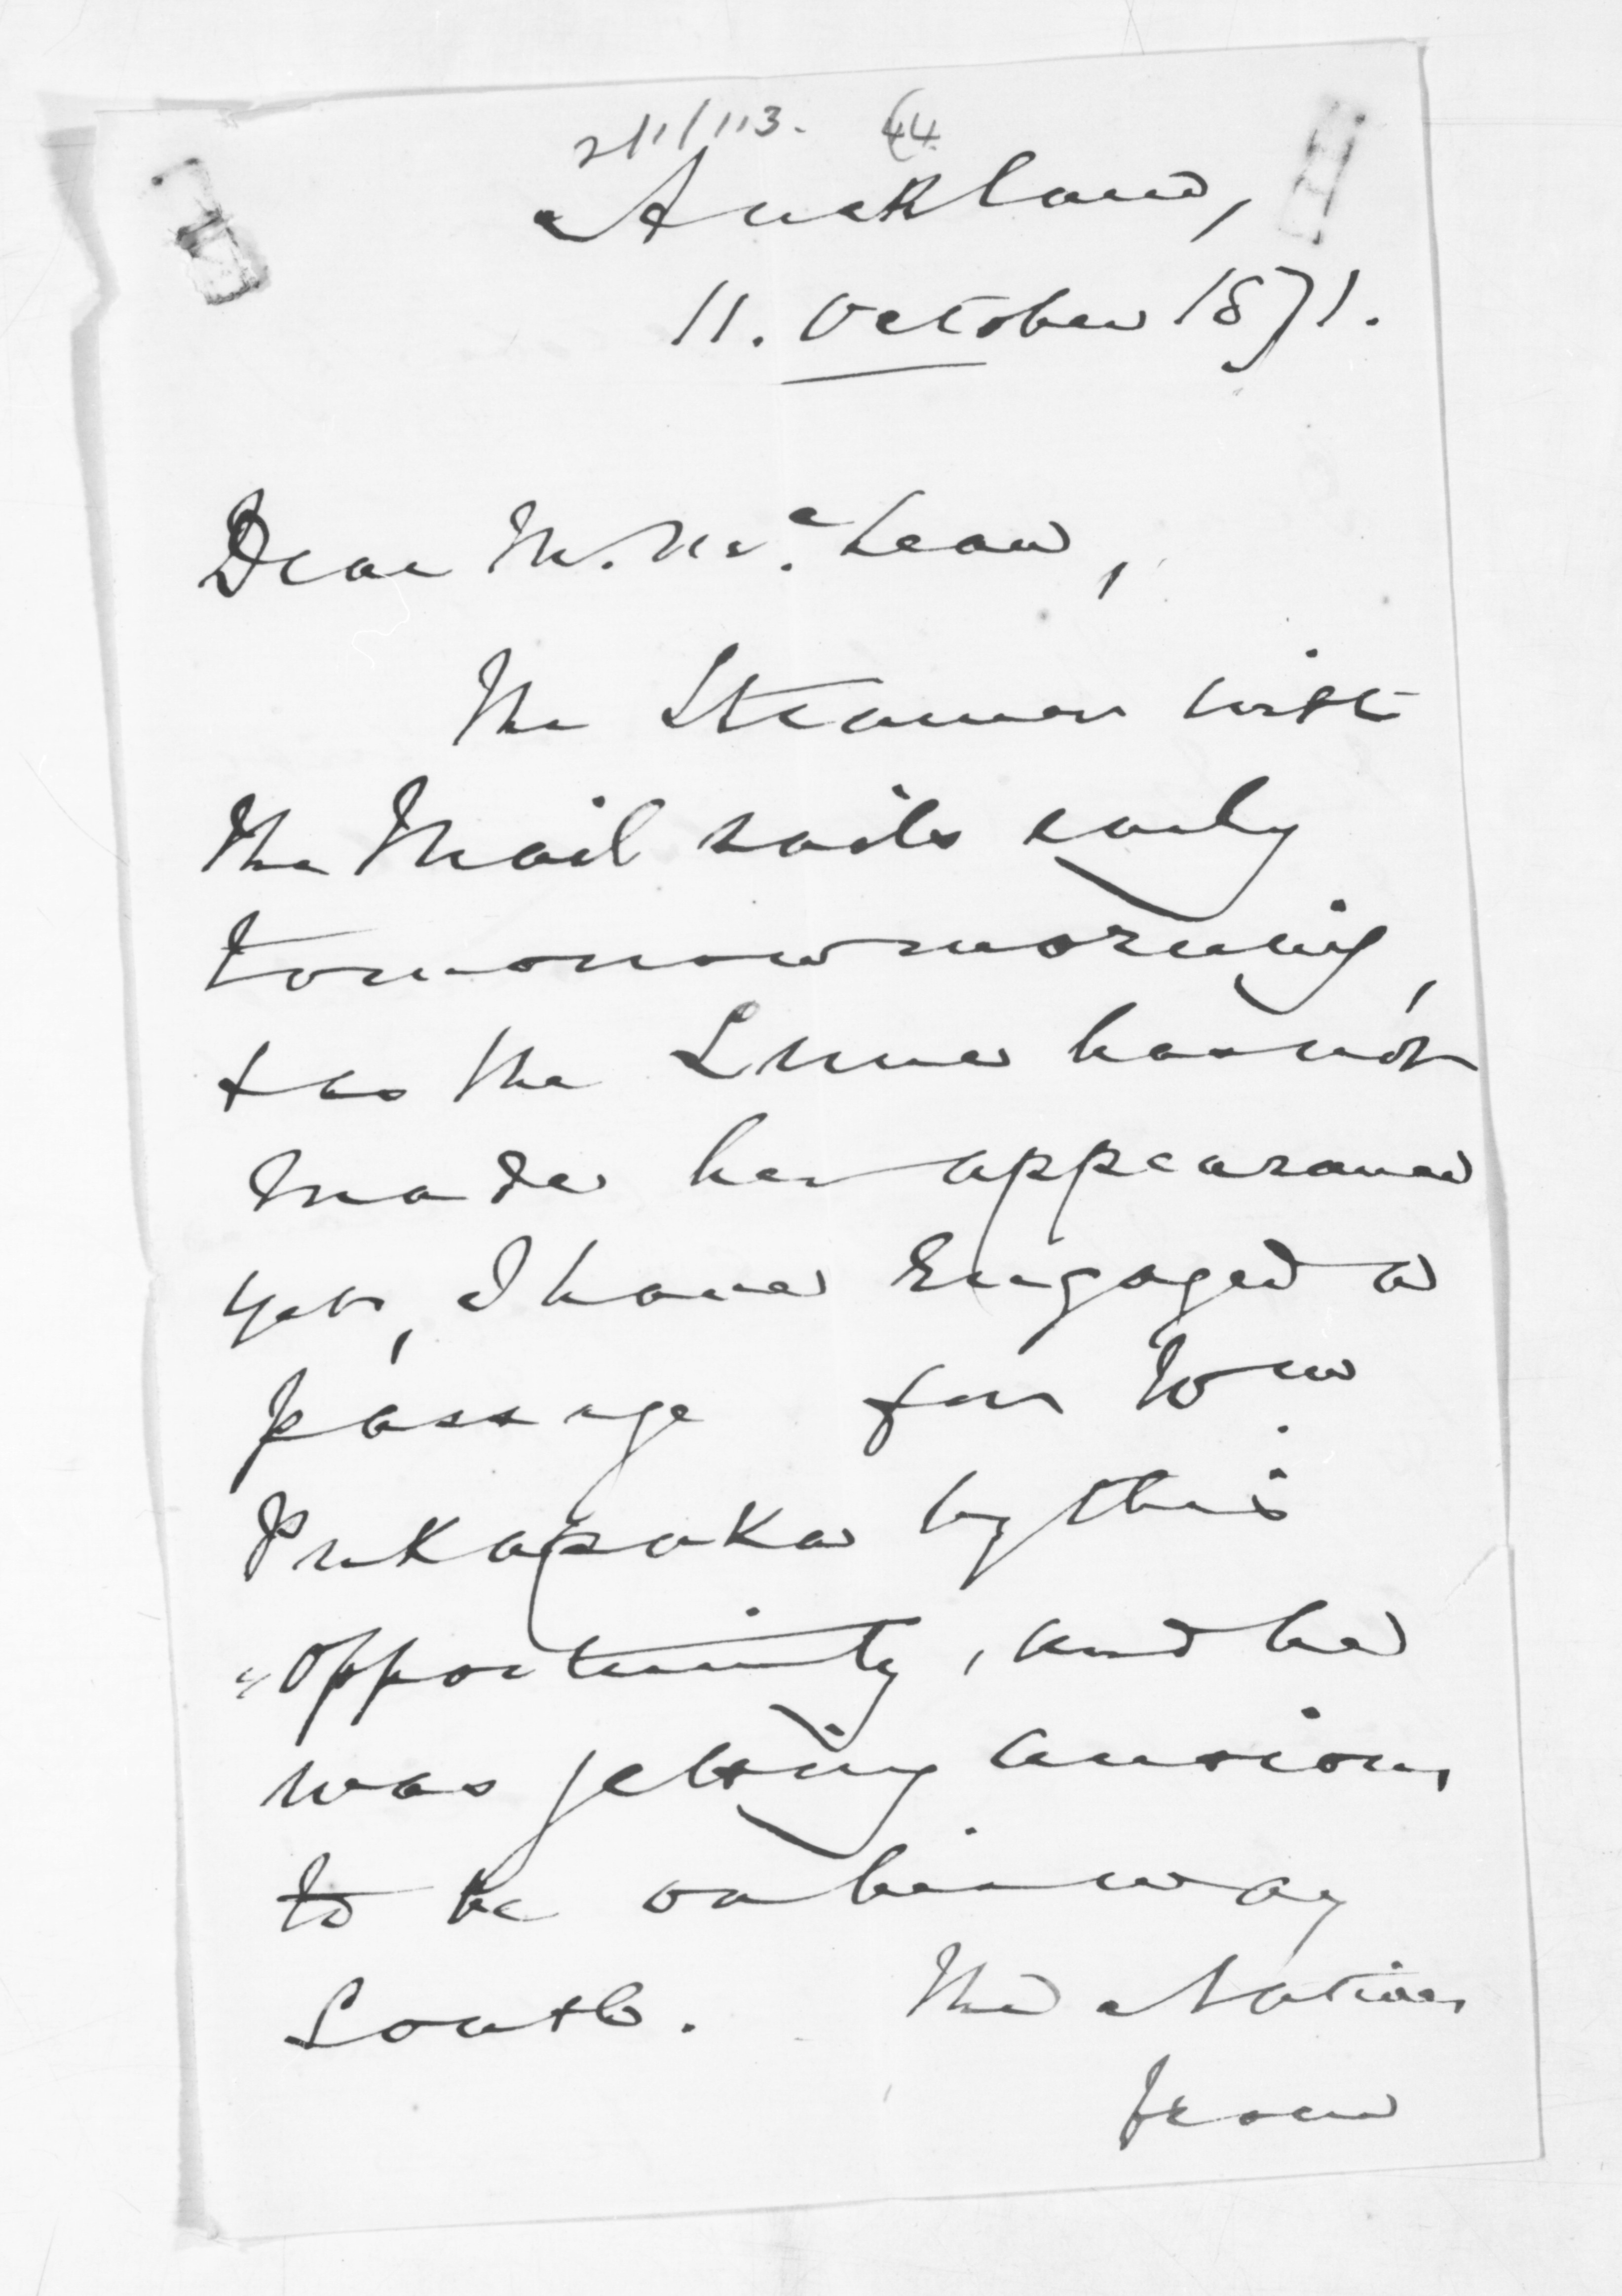 2/1/113. 44
Auckland,
11. October 1871.
Dear Mr. McLean,
The Steamer with
the Mail sails early
tomorrow morning,
& as the Luna has not
made her appearance
yet, I have engaged a
passage for Wm.
Pukapuka by this
opportunity, and he
was getting anxious
to be on his way
South. The Natives
from